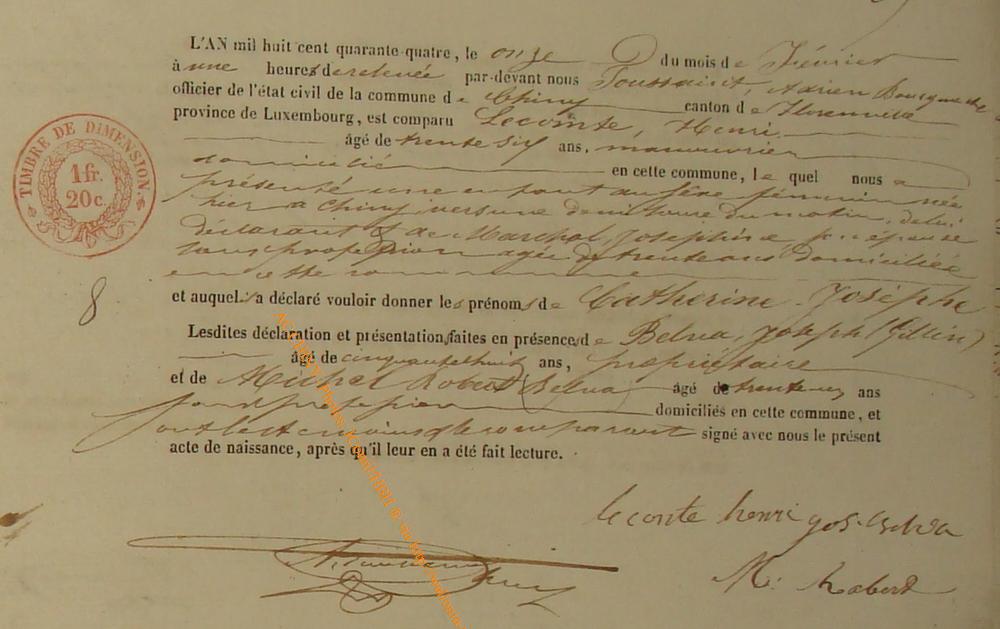 L'AN mil huit cent quarante-quatre, le onze du mois de Février
à une heures de relevée par-devant nous Toussaint, Adrien
officier de l'état civil de la commune de Chiny canton de Florenville
province de Luxembourg, est comparu Lecomte, Henri
âgé de trente six ans, manouvrier
domicilié en cette commune, le quel nous a
présenté une enfant du sexe féminin née
hier à Chiny, vers une demi heure du matin, de lui
déclarant & de Marchal, Joséphine, son épouse
sans profession agée de trente ans domiciliée
en cette commune
et auquel il a déclaré vouloir donner les prénoms de Catherine Josèphe
Lesdites déclaration et présentation faites en présence de Belva Joseph
âgé de cinquante huit ans, propriétaire
et de Michel Robert (Belva) âgé de trente ans
domiciliés en cette commune, et
ont les témoins & le comparant signé avec nous le présent
acte de naissance, après qu'il leur en a été fait lecture.
TIMBRE DE DIMENSION
1 fr.
20 c.
8
lecomte henri jos. Belva
M: Robert